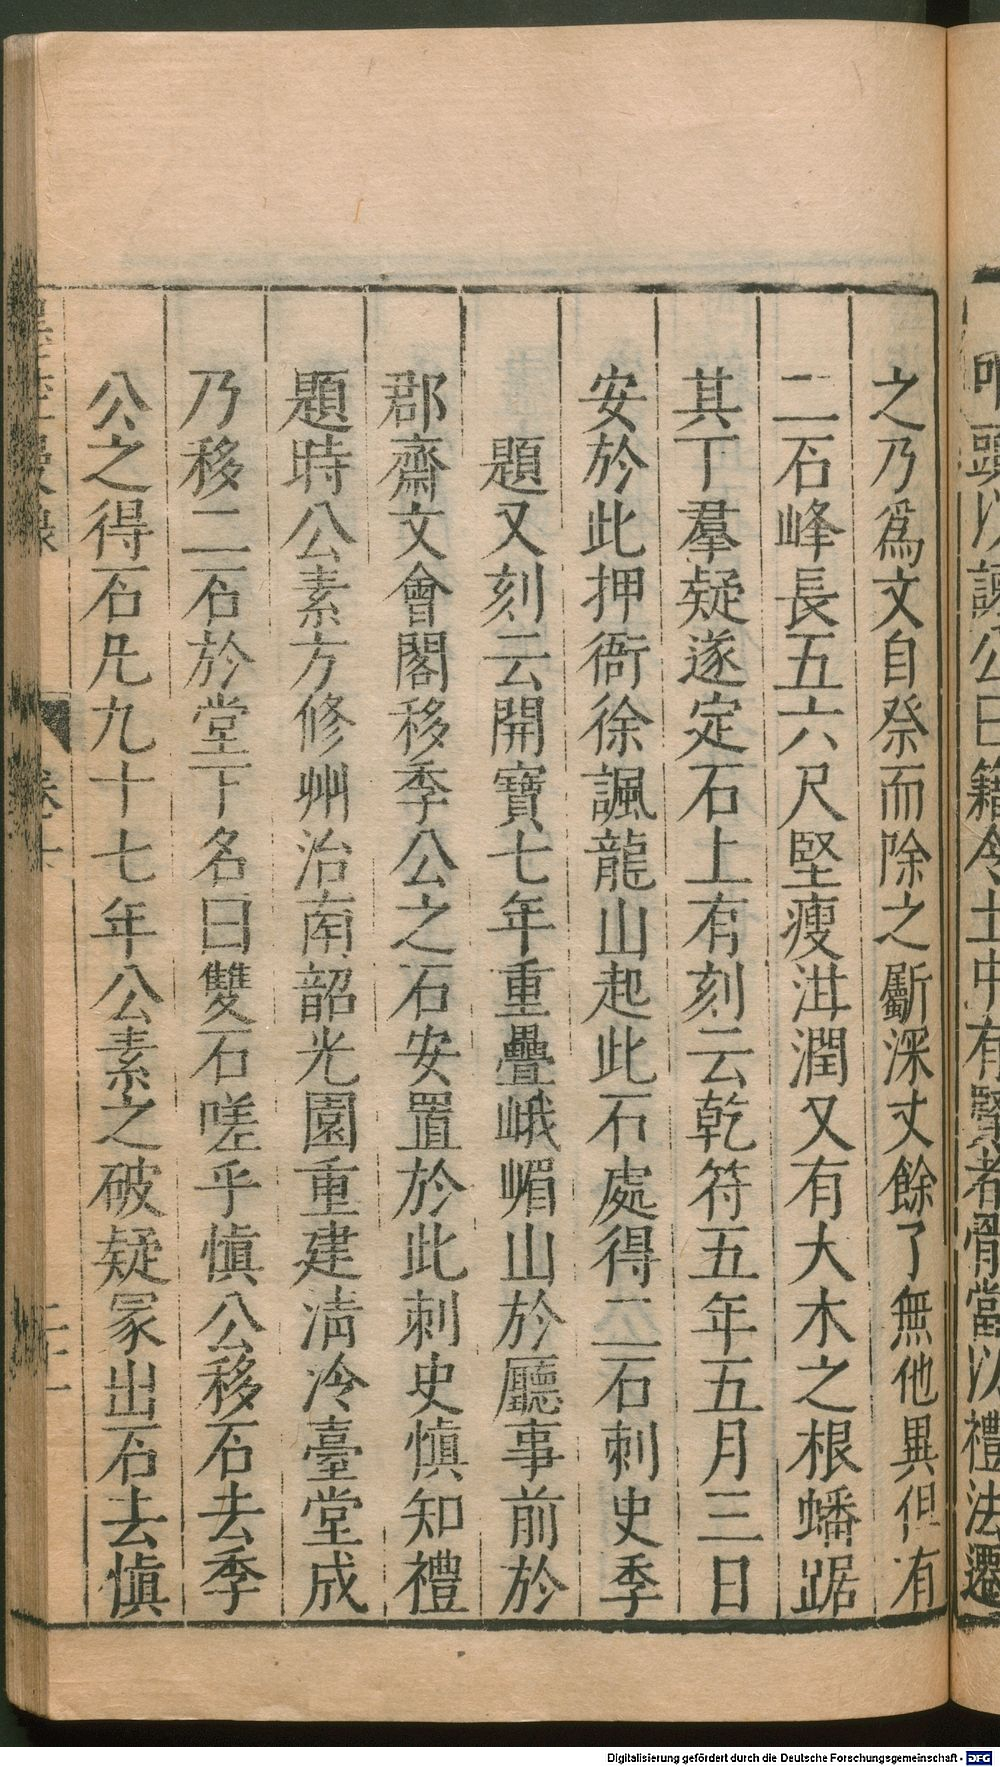 之乃爲文自祭而除之斸深丈餘了無他異但有
二石峰長五六尺堅瘦泔潤又有大木之根蟠踞
其丁羣疑遂定石上有刻云乾符五年五月三日
安於此押衙徐諷龍山起此石處得二石刺史季
題又刻云開寶七年重疊峨嵋山於廳事前於
郡齋文會閣移季公之石安置於此刺史愼知禮
題時公素方修州治南韶光園重建淸冷臺堂成
乃移二石於堂下名曰雙石嗟乎愼公移石去季
公之得石凡九十七年公素之破疑冢出石去愼
卷十
二十一
Digitalisierung gefördert durch die Deutsche Forschungsgemeinschaft - DFG